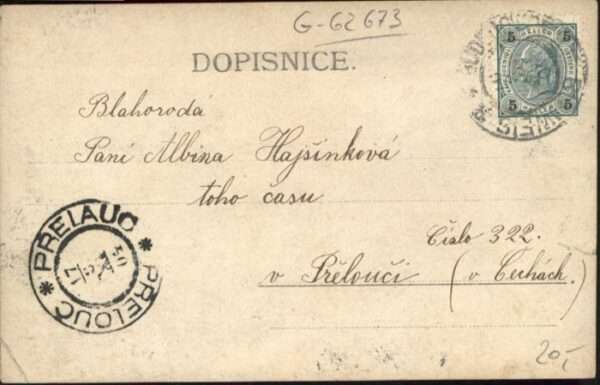 G-62673
DOPISNICE.
5 5
5 5
Blahorodá
Paní Albina Hajšínková
toho času
Číslo 322.
v Přělouči (v Čechách.)
PRELAUC
PŘELOUČ
20,-